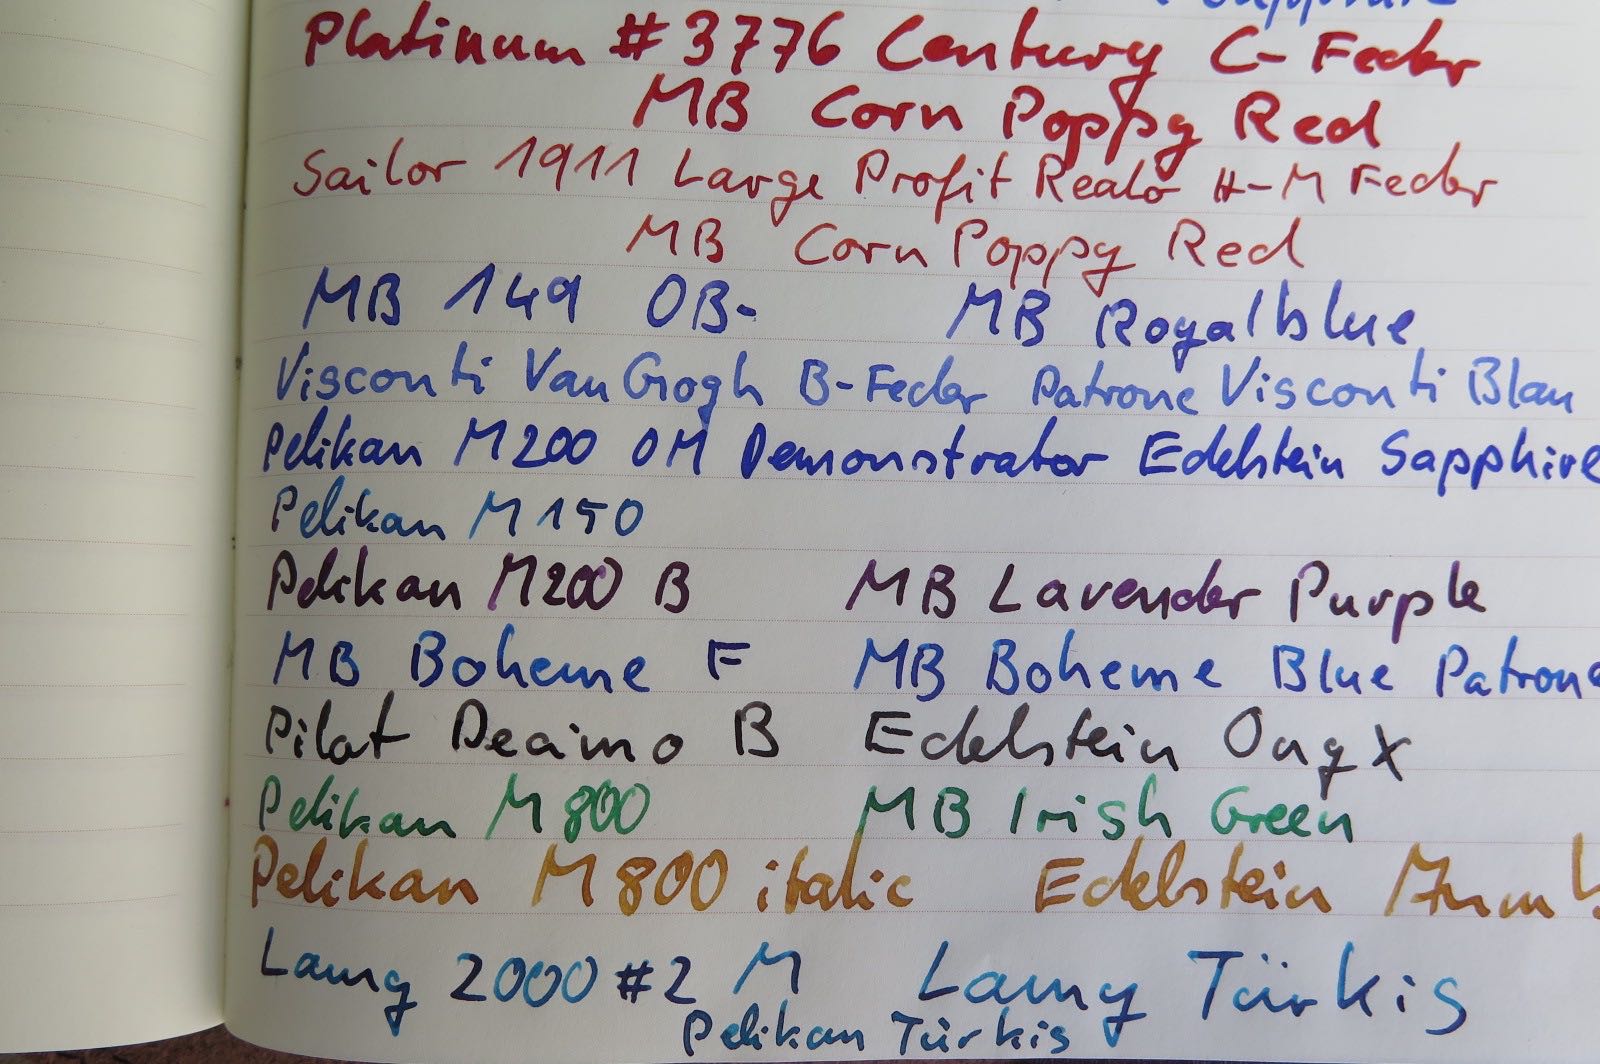 Platinum #3776 Century C-Feder
MB Corn Poppy Red
Sailor 1911 Large Profit Realo H-M Feder
MB Corn Poppy Red
MB 149 OB- MB Royalblue
Visconti Van Gogh B-Feder Patrone Visconti Blau
Pelikan M200 OM Demonstrator Edelstein Sapphire
Pelikan M150
Pelikan M200 B MB Lavender Purple
MB Boheme F MB Boheme Blue Patrone
Pilot Decimo B Edelstein Onyx
Pelikan M800 MB Irish Green
Pelikan M800 italic Edelstein
Lamy 2000 #2 M Lamy Türkis
Pelikan Türkis